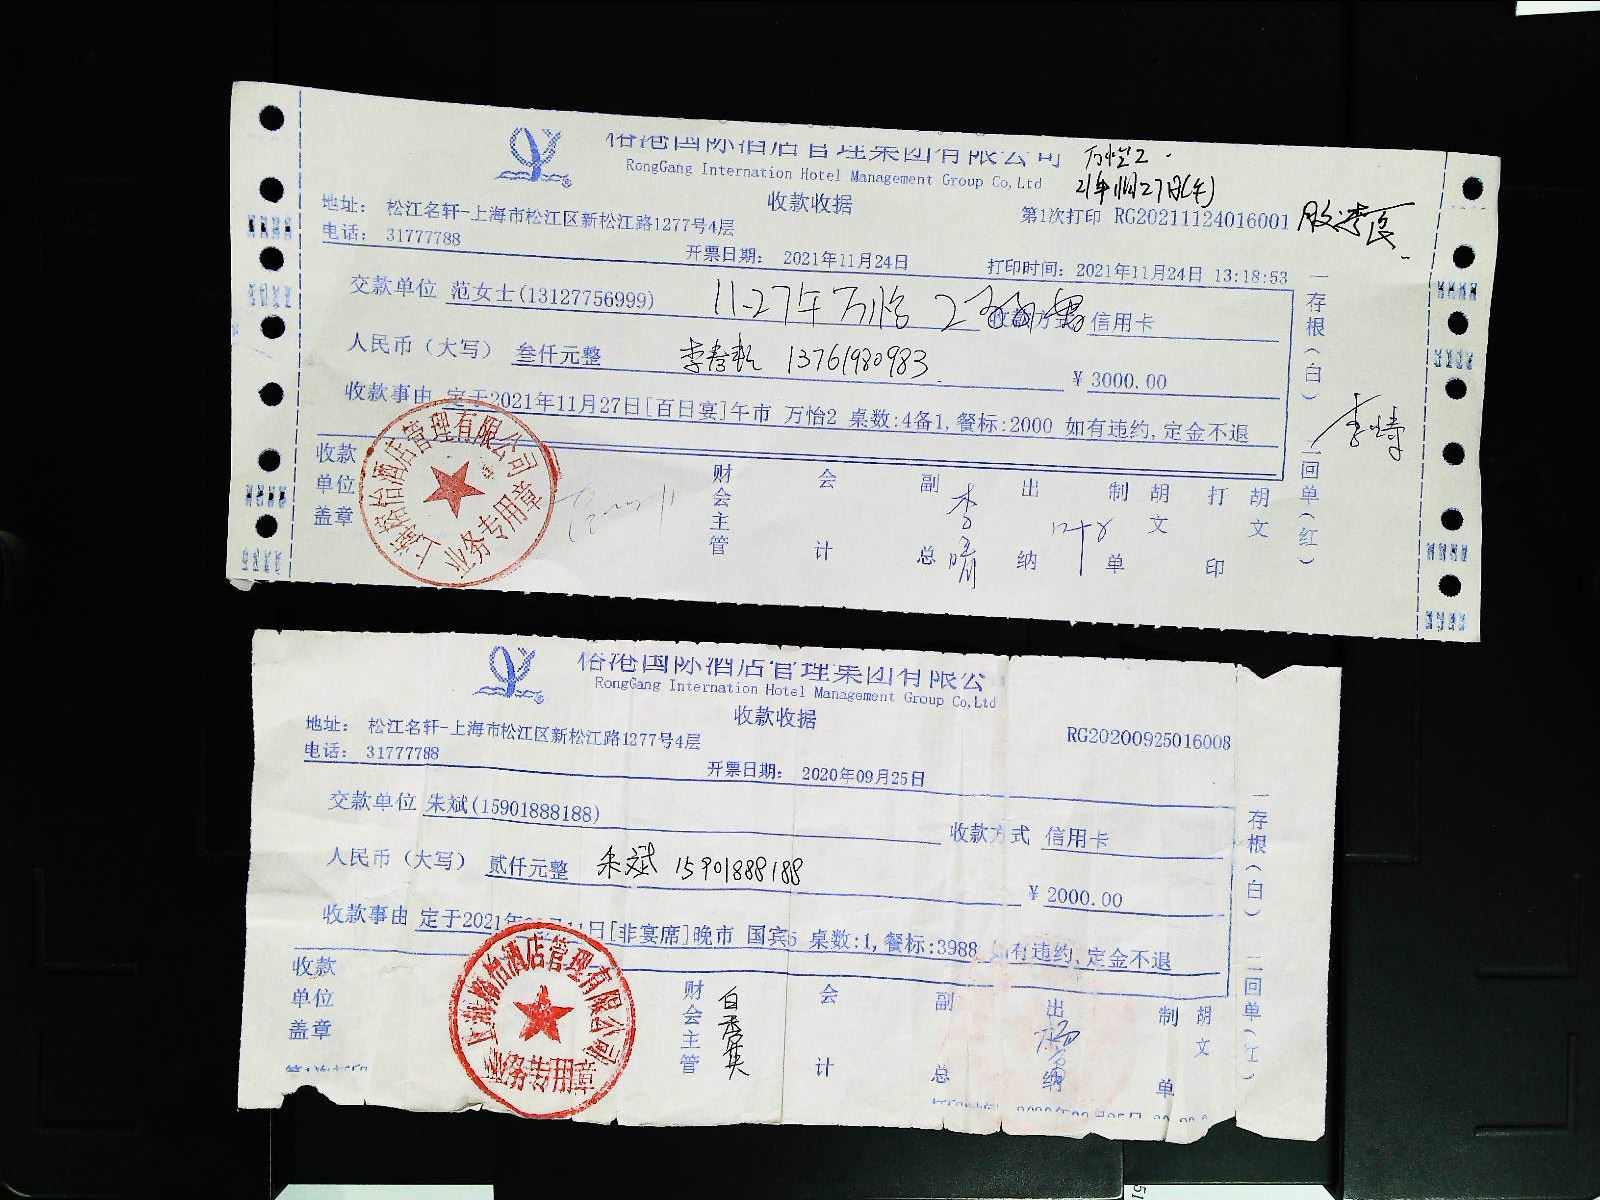 裕港国际酒店管理集团有限公司
RongGang Internation Hotel Management Group Co,Ltd
万怡2.
收款收据
地址： 松江名轩-上海市松江区新松江路1277号4层
第1次打印 RG20211124016001
电话： 31777788
开票日期： 2021年11月24日
打印时间：2021年11月24日 13:18:53
交款单位 范女士(13127756999)
11-27午万怡2
信用卡
人民币（大写） 叁仟元整
13761980983
¥ 3000.00
收款事由 定于2021年11月27日[百日宴]午市 万怡2 桌数:4备1,餐标:2000 如有违约,定金不退
收款单位盖章
财会主管
会计
副总
李晴
出纳
制单
胡文
打印
胡文
一存根（白） 二回单（红）
上海裕怡酒店管理有限公司
业务专用章
裕港国际酒店管理集团有限公
RongGang Internation Hotel Management Group Co,Ltd
收款收据
地址： 松江名轩-上海市松江区新松江路1277号4层
RG20200925016008
电话： 31777788
开票日期： 2020年09月25日
交款单位 朱斌(15901888188)
收款方式 信用卡
人民币（大写） 贰仟元整
朱斌 15901888188
¥ 2000.00
收款事由 定于2021年 11日[非宴席]晚市 国宾5 桌数:1,餐标:3988 如有违约,定金不退
收款单位盖章
财会主管
会计
副总
出纳
制单
胡文
一存根（白） 二回单（红）
上海裕怡酒店管理有限公司
业务专用章